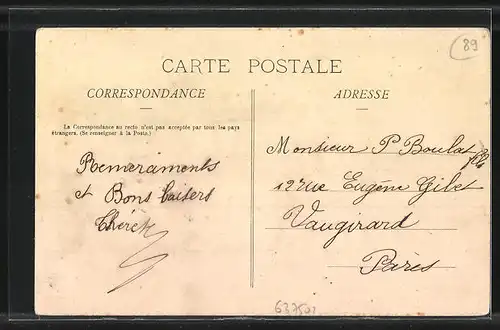 89
CARTE POSTALE
CORRESPONDANCE
ADRESSE
La Correspondance au recto n'est pas acceptée par tous les pays
étrangers. (Se renseigner à la Poste.)
Remerciments
et Bons baisers
Monsieur P Boulat
12 rue Eugène Gibet
Vaugirard
Paris